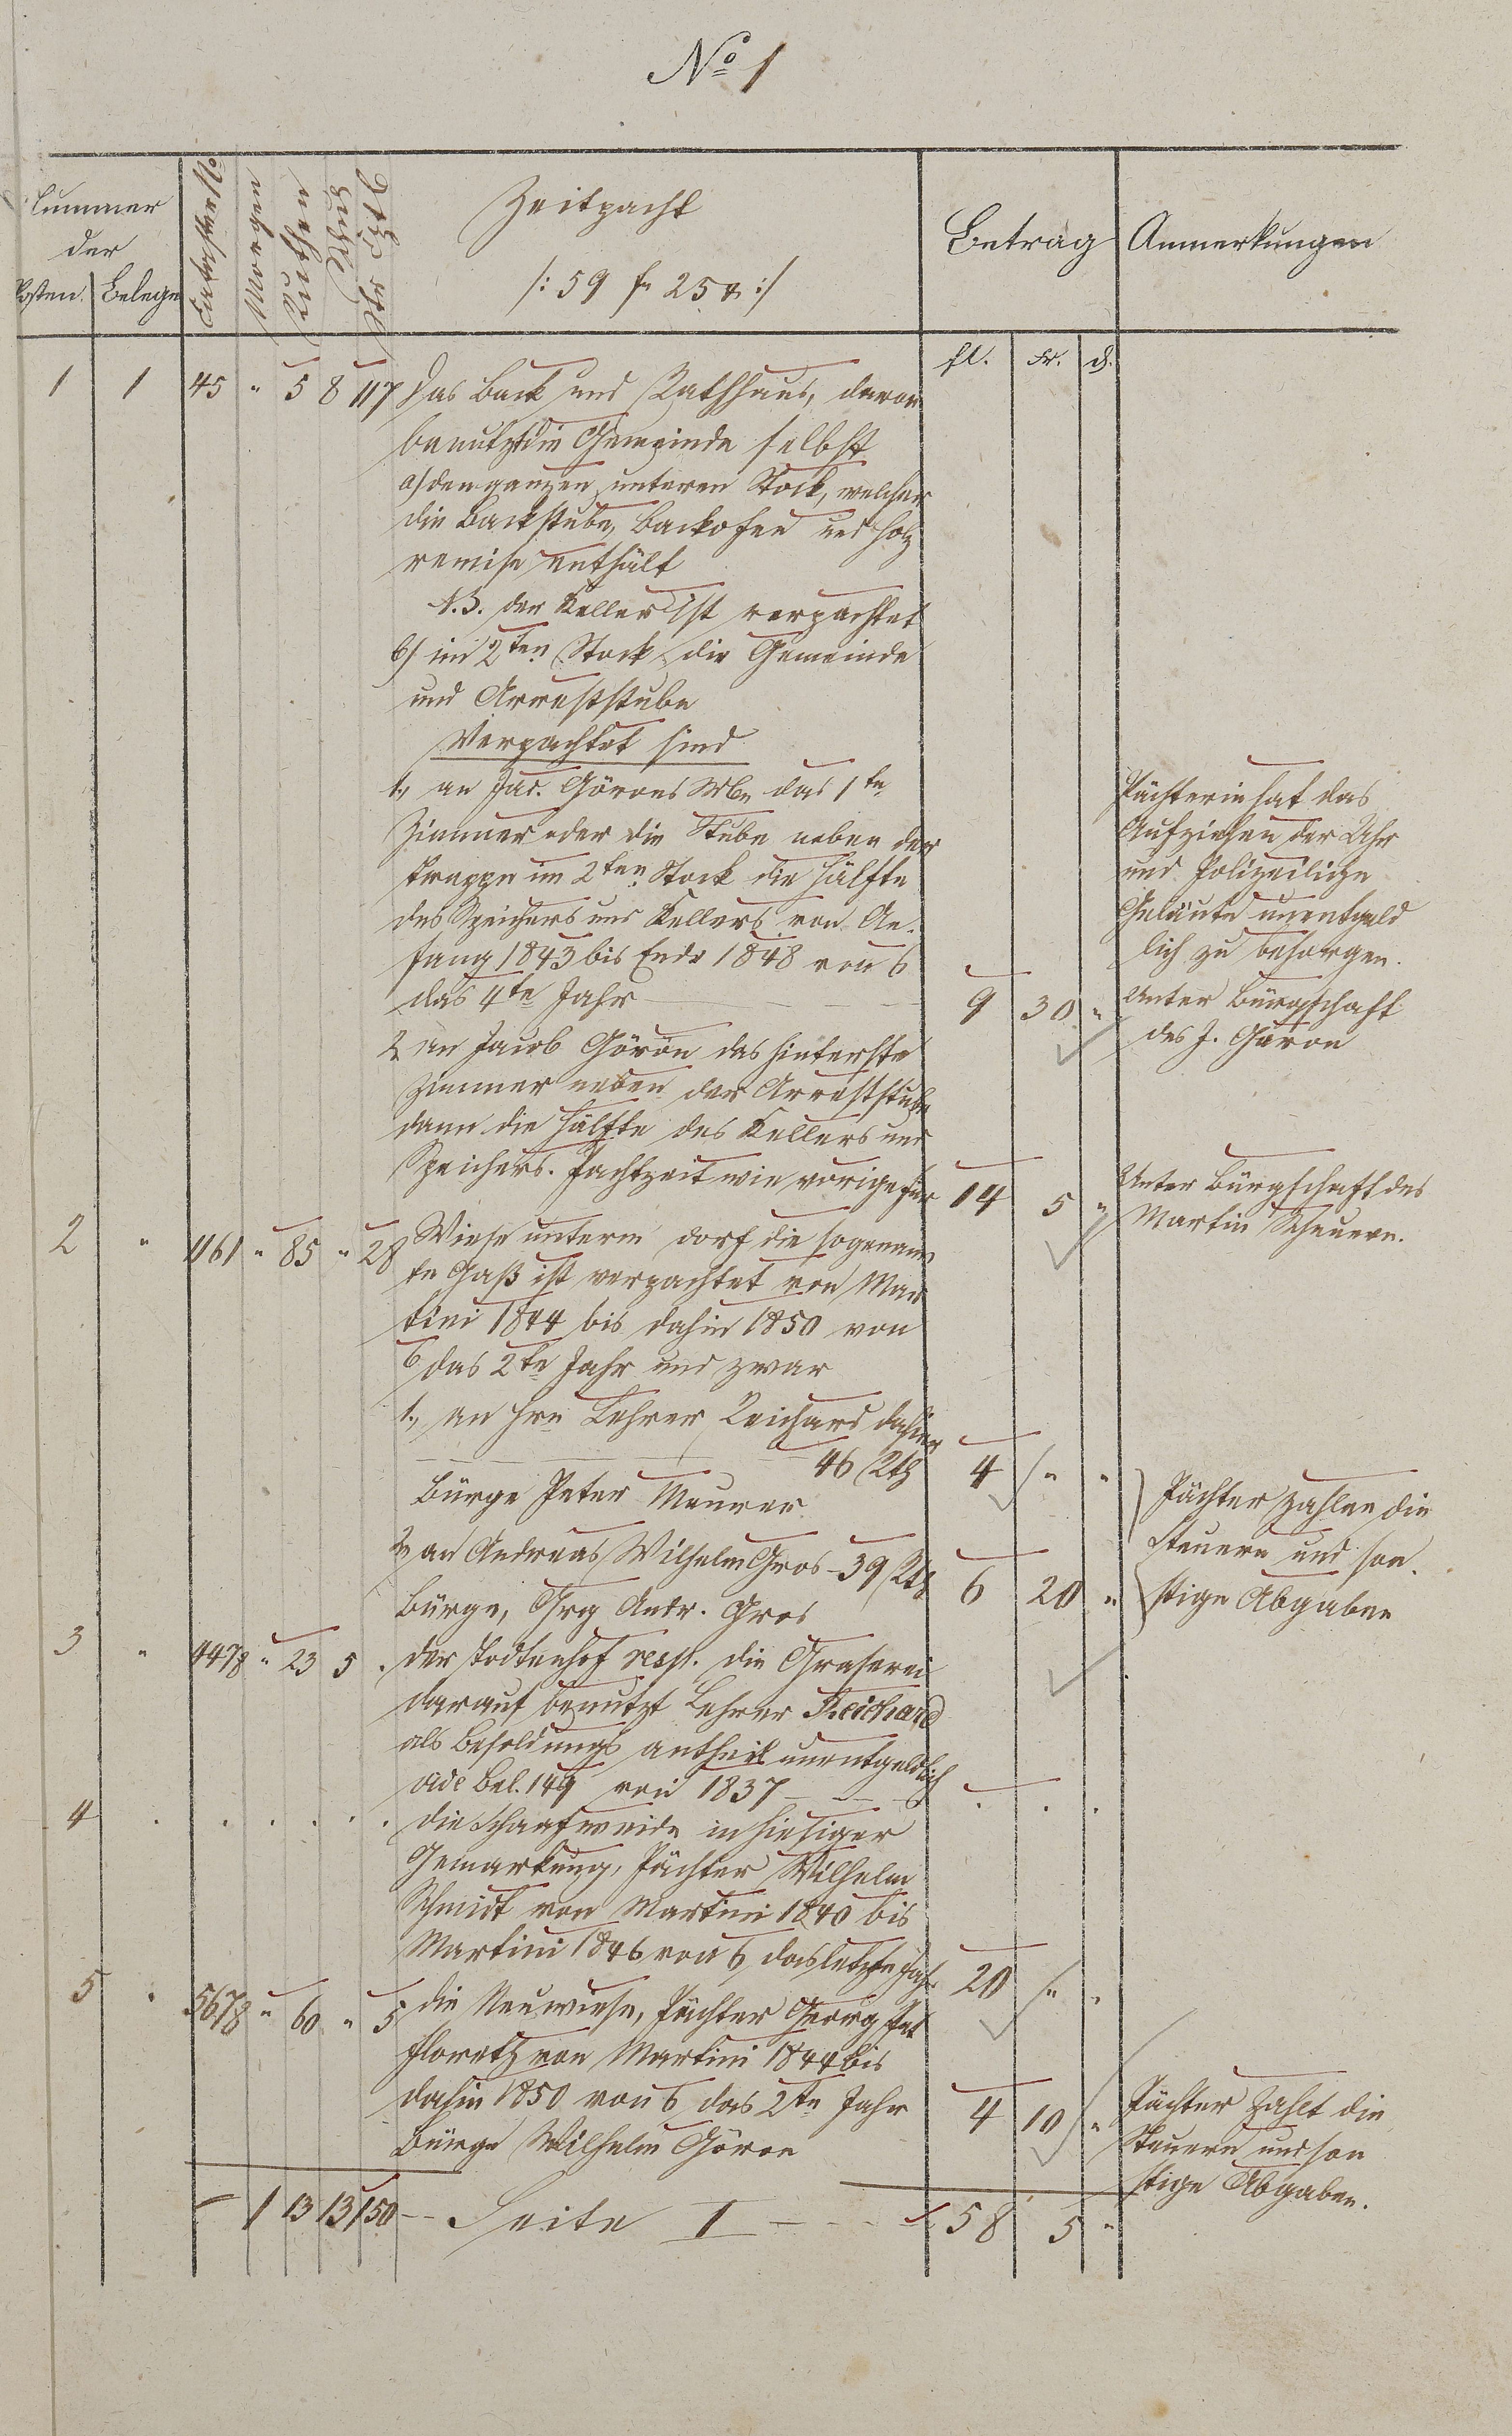 No 1
Nummer der
Posten. Belege
Cataster No
Morgen
Ruthen
Schuh
Zeitpacht
/: 59 fl 25 x :/
Betrag
Anmerkungen
fl. Xr. d.
1 1 45 " 5 8 117 Das Back und Rathhaus, davon
benutzt die Gemeinde selbst
a) den ganzen unteren Stock, welcher
die Backstube, Backofen und Holz
remise enthält
N.B. der Keller ist verpachtet
b) im 2ten Stock die Gemeinde
und Arreststube
Verpachtet sind
1., an Jac. Görons Wbe das 1te
Zimmer oder die Stube neben der
Treppe im 2ten Stock die Hälfte
des Speichers und Kellers von An-
fang 1843 bis Ende 1848 von 6
das 4te Jahr 9 30 "
Pächterin hat das
Aufziehen der Uhr
und Polizeiliche
Geläute unentgeld
lich zu besorgen.
Unter Bürgschaft
des J. Göron
2, an Jacob Göron das hinterste
Zimmer neben der Arreststube
dann die Hälfte des Kellers und
Speichers. Pachtzeit wie vorige für 14 5 "
Unter Bürgschaft des
Martin Scheuern.
2 " 1161 " 85 " 28 Wiese unterm Dorf die sogenann
te Gaß ist verpachtet von Mar
tini 1844 bis dahin 1850 von
6 das 2te Jahr und zwar
1., an Hrn Lehrer Reichard dahier
46 Rth 4 " "
Bürge Peter Maurer
2, an Andreas Wilhelm Gros - 39 Rth 6 20 "
Bürge, Grg Andr. Gros
Pächter zahlen die
Steuern und son-
stige Abgaben
3 " 4478 " 23 5 . der Todtenhof resp. die Graserei
darauf benutzt Lehrer Reichard
als Besoldungs antheil unentgeldlich
vide Bel. 149 von 1837 - - -
4 . . . . . . die Schaafweide in hiesiger
Gemarkung, Pächter Wilhelm
Schmidt von Martini 1840 bis
Martini 1846 von 6 das letzte Jahr 20 " "
5 . 5678 " 60 " 5 die Neuwiese, Pächter Georg Pet
Floreth von Martini 1844 bis
dahin 1850 von 6 das 2te Jahr 4 10 "
Bürge Wilhelm Göron
Pächter zahlt die
Steuern und son
stige Abgaben.
1 13 13 150 - Seite I - - - 58 5 "